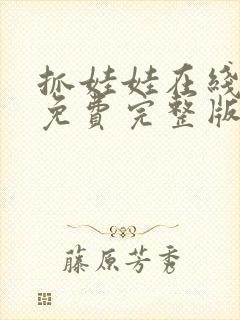 抓娃娃在线
免费完整版
藤原芳秀